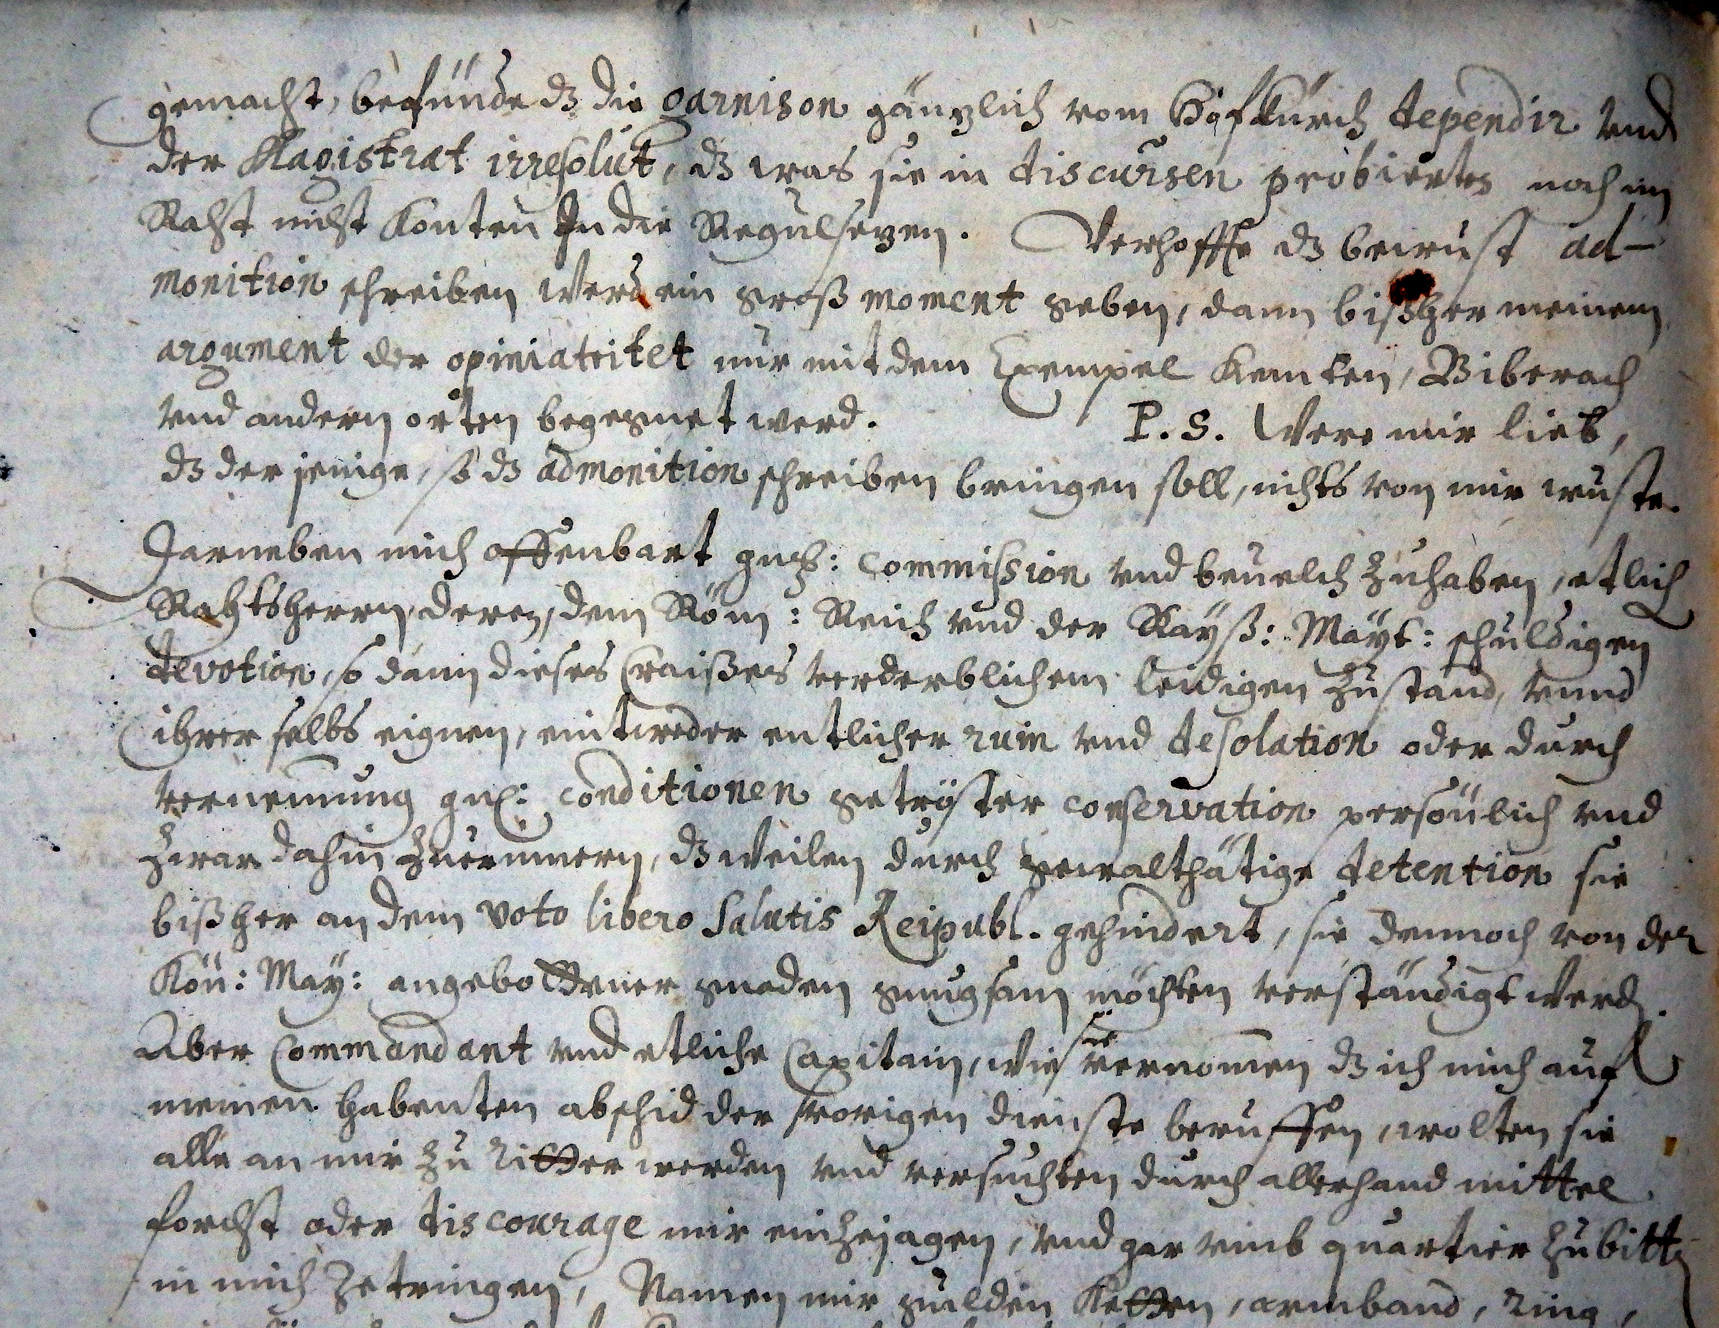 gemacht, befünde dz die garnison gäntzlich vom Hoffkürch dependir vnd
der Magistrat irresolút, dz was sie in discúrsen probiertes noch im
Raht nicht Konten In die Regul setzen. Verhoffe dz bewúst ad-
monition schreiben werd ein groß moment geben, dann bißher meinem
argument der opiniatritet nur mit dem Exempel Kempten, Biberach
vnd andern orten begegnet werd. P. S. Were mir lieb,
dz der jenige, so dz admonition schreiben bringen soll, nichts von mir wuste.
Darneben mich offenbart gnd: Commission vnd beuelch zuhaben, etlich
Rahtsherrn, deren, dem Röm: Reich vnd der Kayß: Mayt: schuldigen
devotion, so dann dieses Craißes verderblichem leidigen Zustand, vnnd
ihrer selbs eignen, eintweder entlicher ruin vnd desolation oder durch
vernemung gnd: conditionen getröster conservation persönlich vnd
zwar dahin zuerinnern, dz weilen durch gewalthätige detention sie
bißher an dem voto libero Salutis Reipubl. gehindert, sie dennoch von der
Kön: May: angebottener gnaden gnugsam möchten verständigt werd.
Aber Commandant vnd etliche Capitain, wie sie vernommen dz ich mich auf
meinen habenten abschid der vorigen dienste beruffen, wolten sie
alle an mir zu ritter werden vnd versuchten durch allerhand mittel
forcht oder discourage mir einzejagen, vnd gar vmb quartier zubitten
in mich zetringen, Namen mir gulden Ketten, armband, ring,